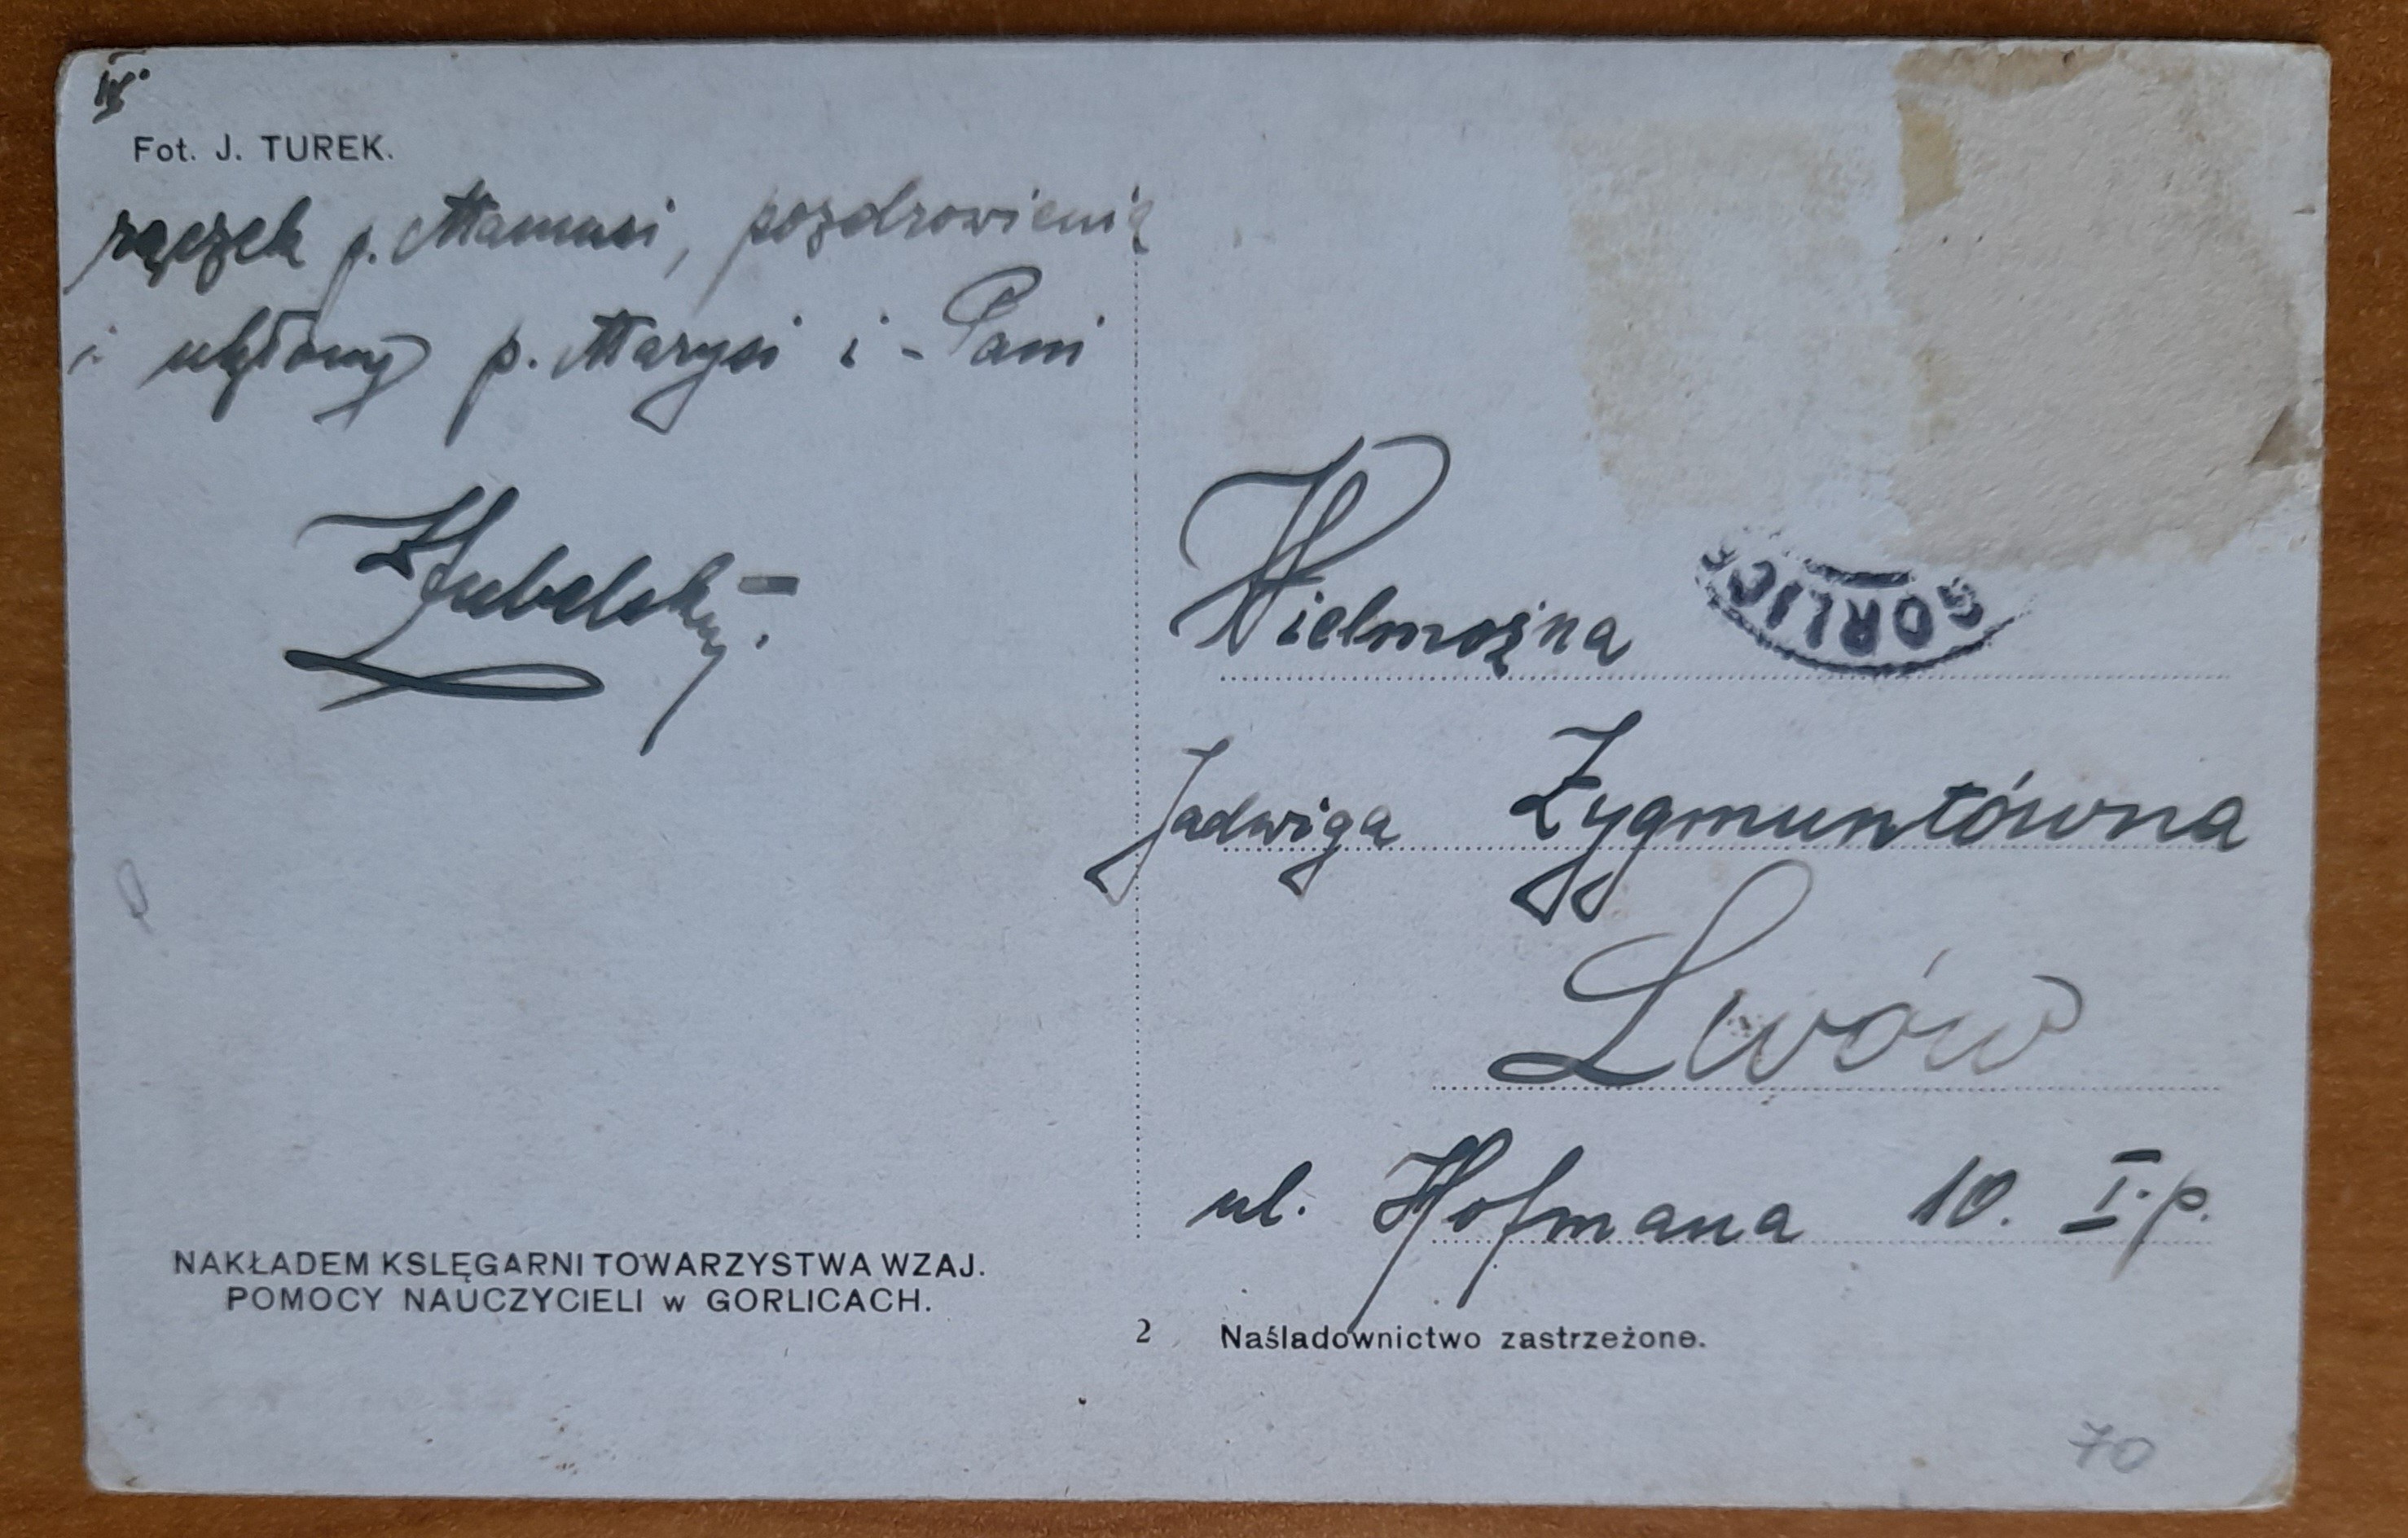 IV.
Fot. J. TUREK.
rączek p. Mamusi, pozdrowienia
i ukłony p. Marysi i - Pani
Wielmożna
GORLICE
Jadwiga Zygmuntówna
Lwów
ul. Hofmana 10. I. p.
NAKŁADEM KSLĘGARNI TOWARZYSTWA WZAJ.
POMOCY NAUCZYCIELI w GORLICACH.
2 Naśladownictwo zastrzeżone.
70